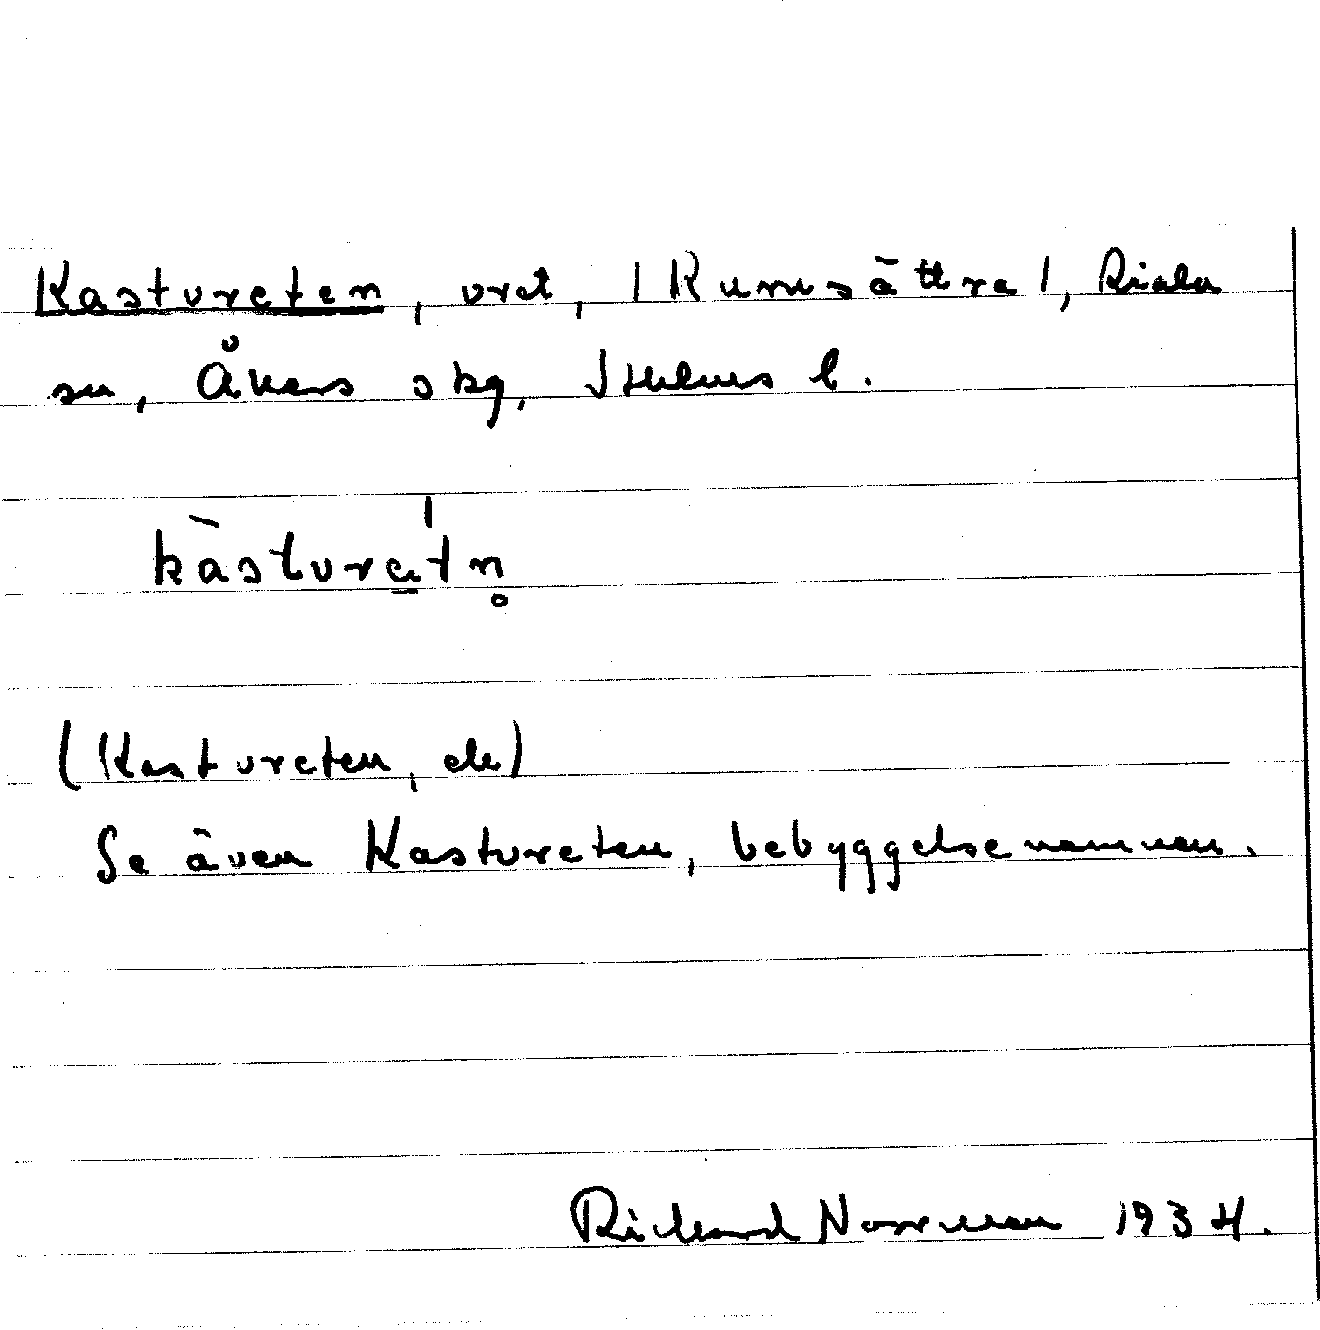 Kastvreten, vret, / Rumsättra /, Riala
sn, Åkers skg, Sthlms l.
kàstvretn̥
(Kastvreten, ek)
Se även Kastvreten, bebyggelsenamnen.
Rickard Norrman 1934.